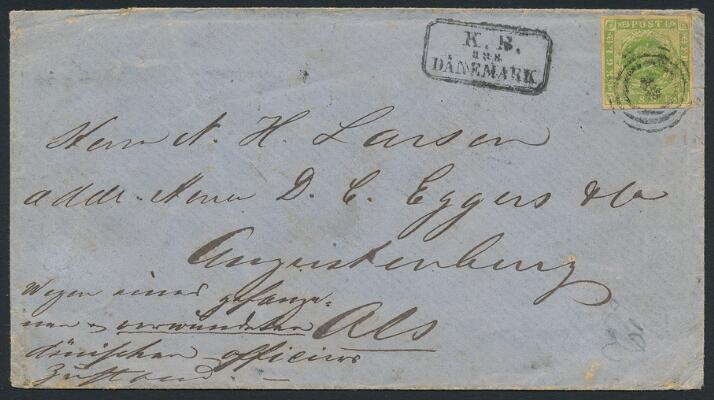 K. B.
aus
DÄNEMARK
KGL POST FRM
Herrn N. H. Larsen
addr. Herrn D. C. Eggers & Co
Augustenburg
Als
Wegen eines gefange-
nen u. verwundeten
dänischen officiers
Zustand. —